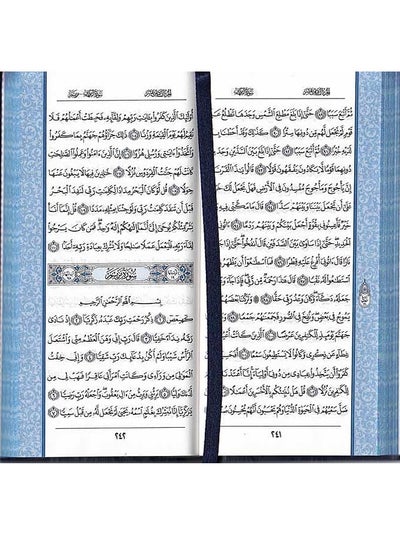 ثُمَّ أَتْبَعَ سَبَبًا ٨٩ حَتَّىٰ إِذَا بَلَغَ مَطْلِعَ ٱلشَّمْسِ وَجَدَهَا تَطْلُعُ عَلَىٰ
قَوْمٍ لَّمْ نَجْعَل لَّهُم مِّن دُونِهَا سِتْرًا ٩٠ كَذَٰلِكَ وَقَدْ أَحَطْنَا بِمَا
لَدَيْهِ خُبْرًا ٩١ ثُمَّ أَتْبَعَ سَبَبًا ٩٢ حَتَّىٰ إِذَا بَلَغَ بَيْنَ ٱلسَّدَّيْنِ وَجَدَ مِن
دُونِهِمَا قَوْمًا لَّا يَكَادُونَ يَفْقَهُونَ قَوْلًا ٩٣ قَالُوا۟ يَٰذَا ٱلْقَرْنَيْنِ إِنَّ
يَأْجُوجَ وَمَأْجُوجَ مُفْسِدُونَ فِى ٱلْأَرْضِ فَهَلْ نَجْعَلُ لَكَ خَرْجًا
عَلَىٰٓ أَن تَجْعَلَ بَيْنَنَا وَبَيْنَهُمْ سَدًّا ٩٤ قَالَ مَا مَكَّنِّى فِيهِ رَبِّى
خَيْرٌ فَأَعِينُونِى بِقُوَّةٍ أَجْعَلْ بَيْنَكُمْ وَبَيْنَهُمْ رَدْمًا ٩٥ ءَاتُونِى زُبَرَ
ٱلْحَدِيدِ حَتَّىٰٓ إِذَا سَاوَىٰ بَيْنَ ٱلصَّدَفَيْنِ قَالَ ٱنفُخُوا۟ حَتَّىٰٓ إِذَا جَعَلَهُۥ
نَارًا قَالَ ءَاتُونِىٓ أُفْرِغْ عَلَيْهِ قِطْرًا ٩٦ فَمَا ٱسْطَٰعُوٓا۟ أَن يَظْهَرُوهُ وَمَا
ٱسْتَطَٰعُوا۟ لَهُۥ نَقْبًا ٩٧ قَالَ هَٰذَا رَحْمَةٌ مِّن رَّبِّى فَإِذَا جَآءَ وَعْدُ رَبِّى
جَعَلَهُۥ دَكَّآءَ وَكَانَ وَعْدُ رَبِّى حَقًّا ٩٨ وَتَرَكْنَا بَعْضَهُمْ
يَوْمَئِذٍ يَمُوجُ فِى بَعْضٍ وَنُفِخَ فِى ٱلصُّورِ فَجَمَعْنَٰهُمْ جَمْعًا ٩٩ وَعَرَضْنَا
جَهَنَّمَ يَوْمَئِذٍ لِّلْكَٰفِرِينَ عَرْضًا ١٠٠ ٱلَّذِينَ كَانَتْ أَعْيُنُهُمْ فِى
غِطَآءٍ عَن ذِكْرِى وَكَانُوا۟ لَا يَسْتَطِيعُونَ سَمْعًا ١٠١ أَفَحَسِبَ ٱلَّذِينَ
كَفَرُوٓا۟ أَن يَتَّخِذُوا۟ عِبَادِى مِن دُونِىٓ أَوْلِيَآءَ إِنَّآ أَعْتَدْنَا جَهَنَّمَ
لِلْكَٰفِرِينَ نُزُلًا ١٠٢ قُلْ هَلْ نُنَبِّئُكُم بِٱلْأَخْسَرِينَ أَعْمَٰلًا ١٠٣ ٱلَّذِينَ
ضَلَّ سَعْيُهُمْ فِى ٱلْحَيَوٰةِ ٱلدُّنْيَا وَهُمْ يَحْسَبُونَ أَنَّهُمْ يُحْسِنُونَ صُنْعًا ١٠٤
٢٤١
أُو۟لَٰٓئِكَ ٱلَّذِينَ كَفَرُوا۟ بِـَٔايَٰتِ رَبِّهِمْ وَلِقَآئِهِۦ فَحَبِطَتْ أَعْمَٰلُهُمْ فَلَا
نُقِيمُ لَهُمْ يَوْمَ ٱلْقِيَٰمَةِ وَزْنًا ١٠٥ ذَٰلِكَ جَزَآؤُهُمْ جَهَنَّمُ بِمَا كَفَرُوا۟
وَٱتَّخَذُوٓا۟ ءَايَٰتِى وَرُسُلِى هُزُوًا ١٠٦ إِنَّ ٱلَّذِينَ ءَامَنُوا۟ وَعَمِلُوا۟ ٱلصَّٰلِحَٰتِ
كَانَتْ لَهُمْ جَنَّٰتُ ٱلْفِرْدَوْسِ نُزُلًا ١٠٧ خَٰلِدِينَ فِيهَا لَا يَبْغُونَ عَنْهَا
حِوَلًا ١٠٨ قُل لَّوْ كَانَ ٱلْبَحْرُ مِدَادًا لِّكَلِمَٰتِ رَبِّى لَنَفِدَ ٱلْبَحْرُ
قَبْلَ أَن تَنفَدَ كَلِمَٰتُ رَبِّى وَلَوْ جِئْنَا بِمِثْلِهِۦ مَدَدًا ١٠٩ قُلْ إِنَّمَآ أَنَا۠
بَشَرٌ مِّثْلُكُمْ يُوحَىٰٓ إِلَىَّ أَنَّمَآ إِلَٰهُكُمْ إِلَٰهٌ وَٰحِدٌ فَمَن كَانَ يَرْجُوا۟
لِقَآءَ رَبِّهِۦ فَلْيَعْمَلْ عَمَلًا صَٰلِحًا وَلَا يُشْرِكْ بِعِبَادَةِ رَبِّهِۦٓ أَحَدًۢا ١١٠
سُورَةُ مَرْيَمَ
بِسْمِ ٱللَّهِ ٱلرَّحْمَٰنِ ٱلرَّحِيمِ
كٓهيعٓصٓ ١ ذِكْرُ رَحْمَتِ رَبِّكَ عَبْدَهُۥ زَكَرِيَّآ ٢ إِذْ نَادَىٰ
رَبَّهُۥ نِدَآءً خَفِيًّا ٣ قَالَ رَبِّ إِنِّى وَهَنَ ٱلْعَظْمُ مِنِّى وَٱشْتَعَلَ
ٱلرَّأْسُ شَيْبًا وَلَمْ أَكُنۢ بِدُعَآئِكَ رَبِّ شَقِيًّا ٤ وَإِنِّى خِفْتُ
ٱلْمَوَٰلِىَ مِن وَرَآءِى وَكَانَتِ ٱمْرَأَتِى عَاقِرًا فَهَبْ لِى مِن
لَّدُنكَ وَلِيًّا ٥ يَرِثُنِى وَيَرِثُ مِنْ ءَالِ يَعْقُوبَ وَٱجْعَلْهُ رَبِّ رَضِيًّا ٦
يَٰزَكَرِيَّآ إِنَّا نُبَشِّرُكَ بِغُلَٰمٍ ٱسْمُهُۥ يَحْيَىٰ لَمْ نَجْعَل لَّهُۥ مِن قَبْلُ سَمِيًّا ٧
٢٤٢